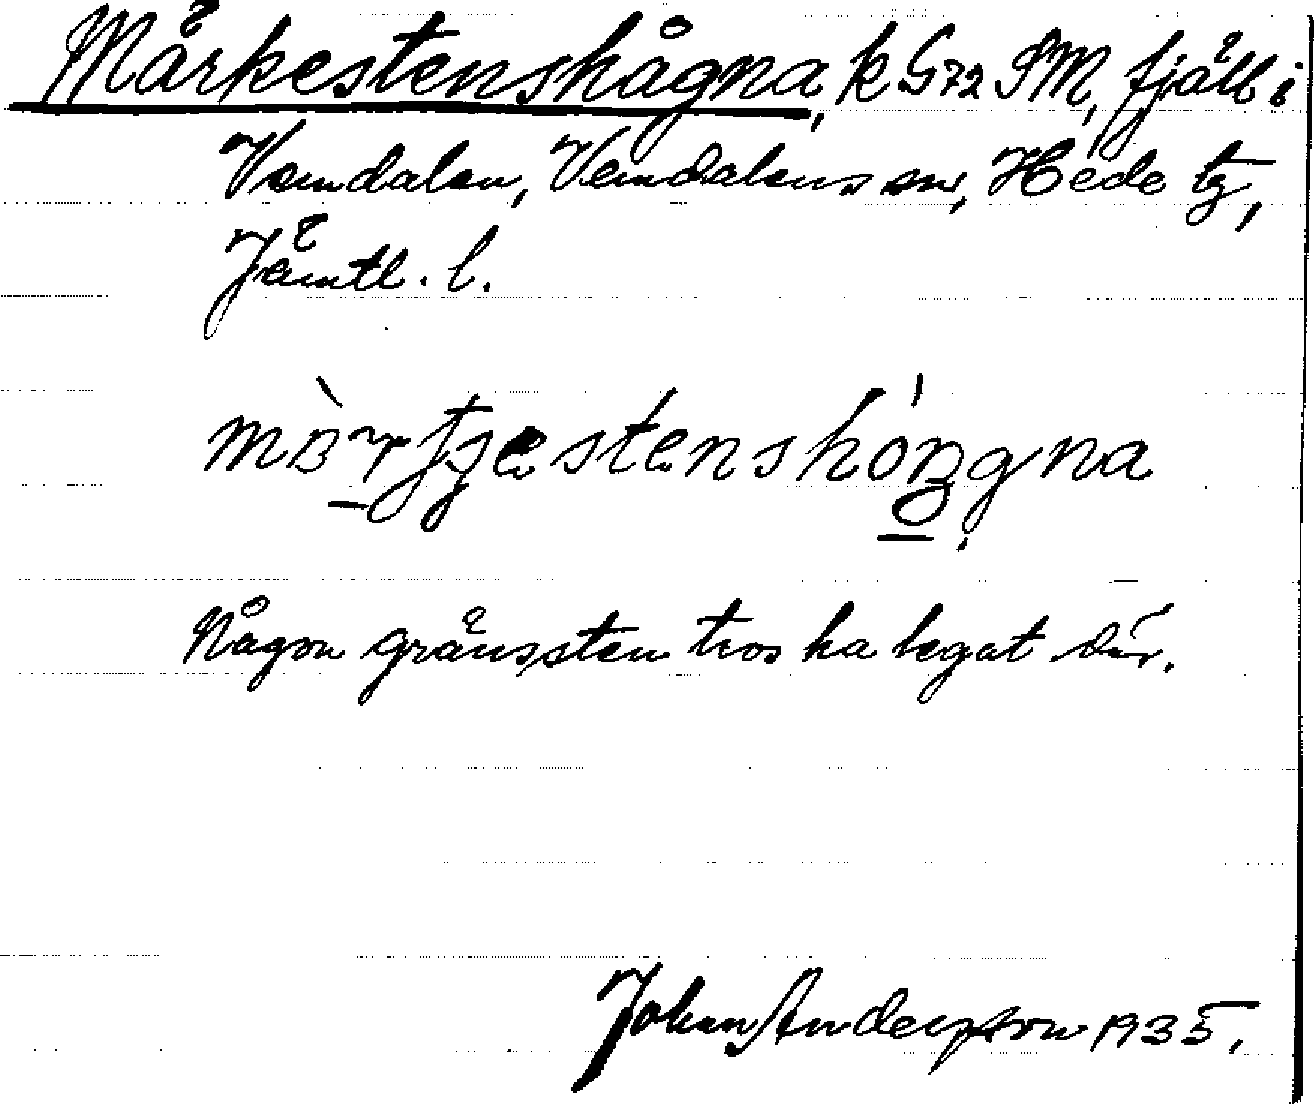 Märkestenshågna, k G72 SM, fjäll i
Vemdalen, Vemdalens sn, Hede tg,
Jämtl. l.
Någon gränssten tros ha legat där.
Johan Anderzon 1935.